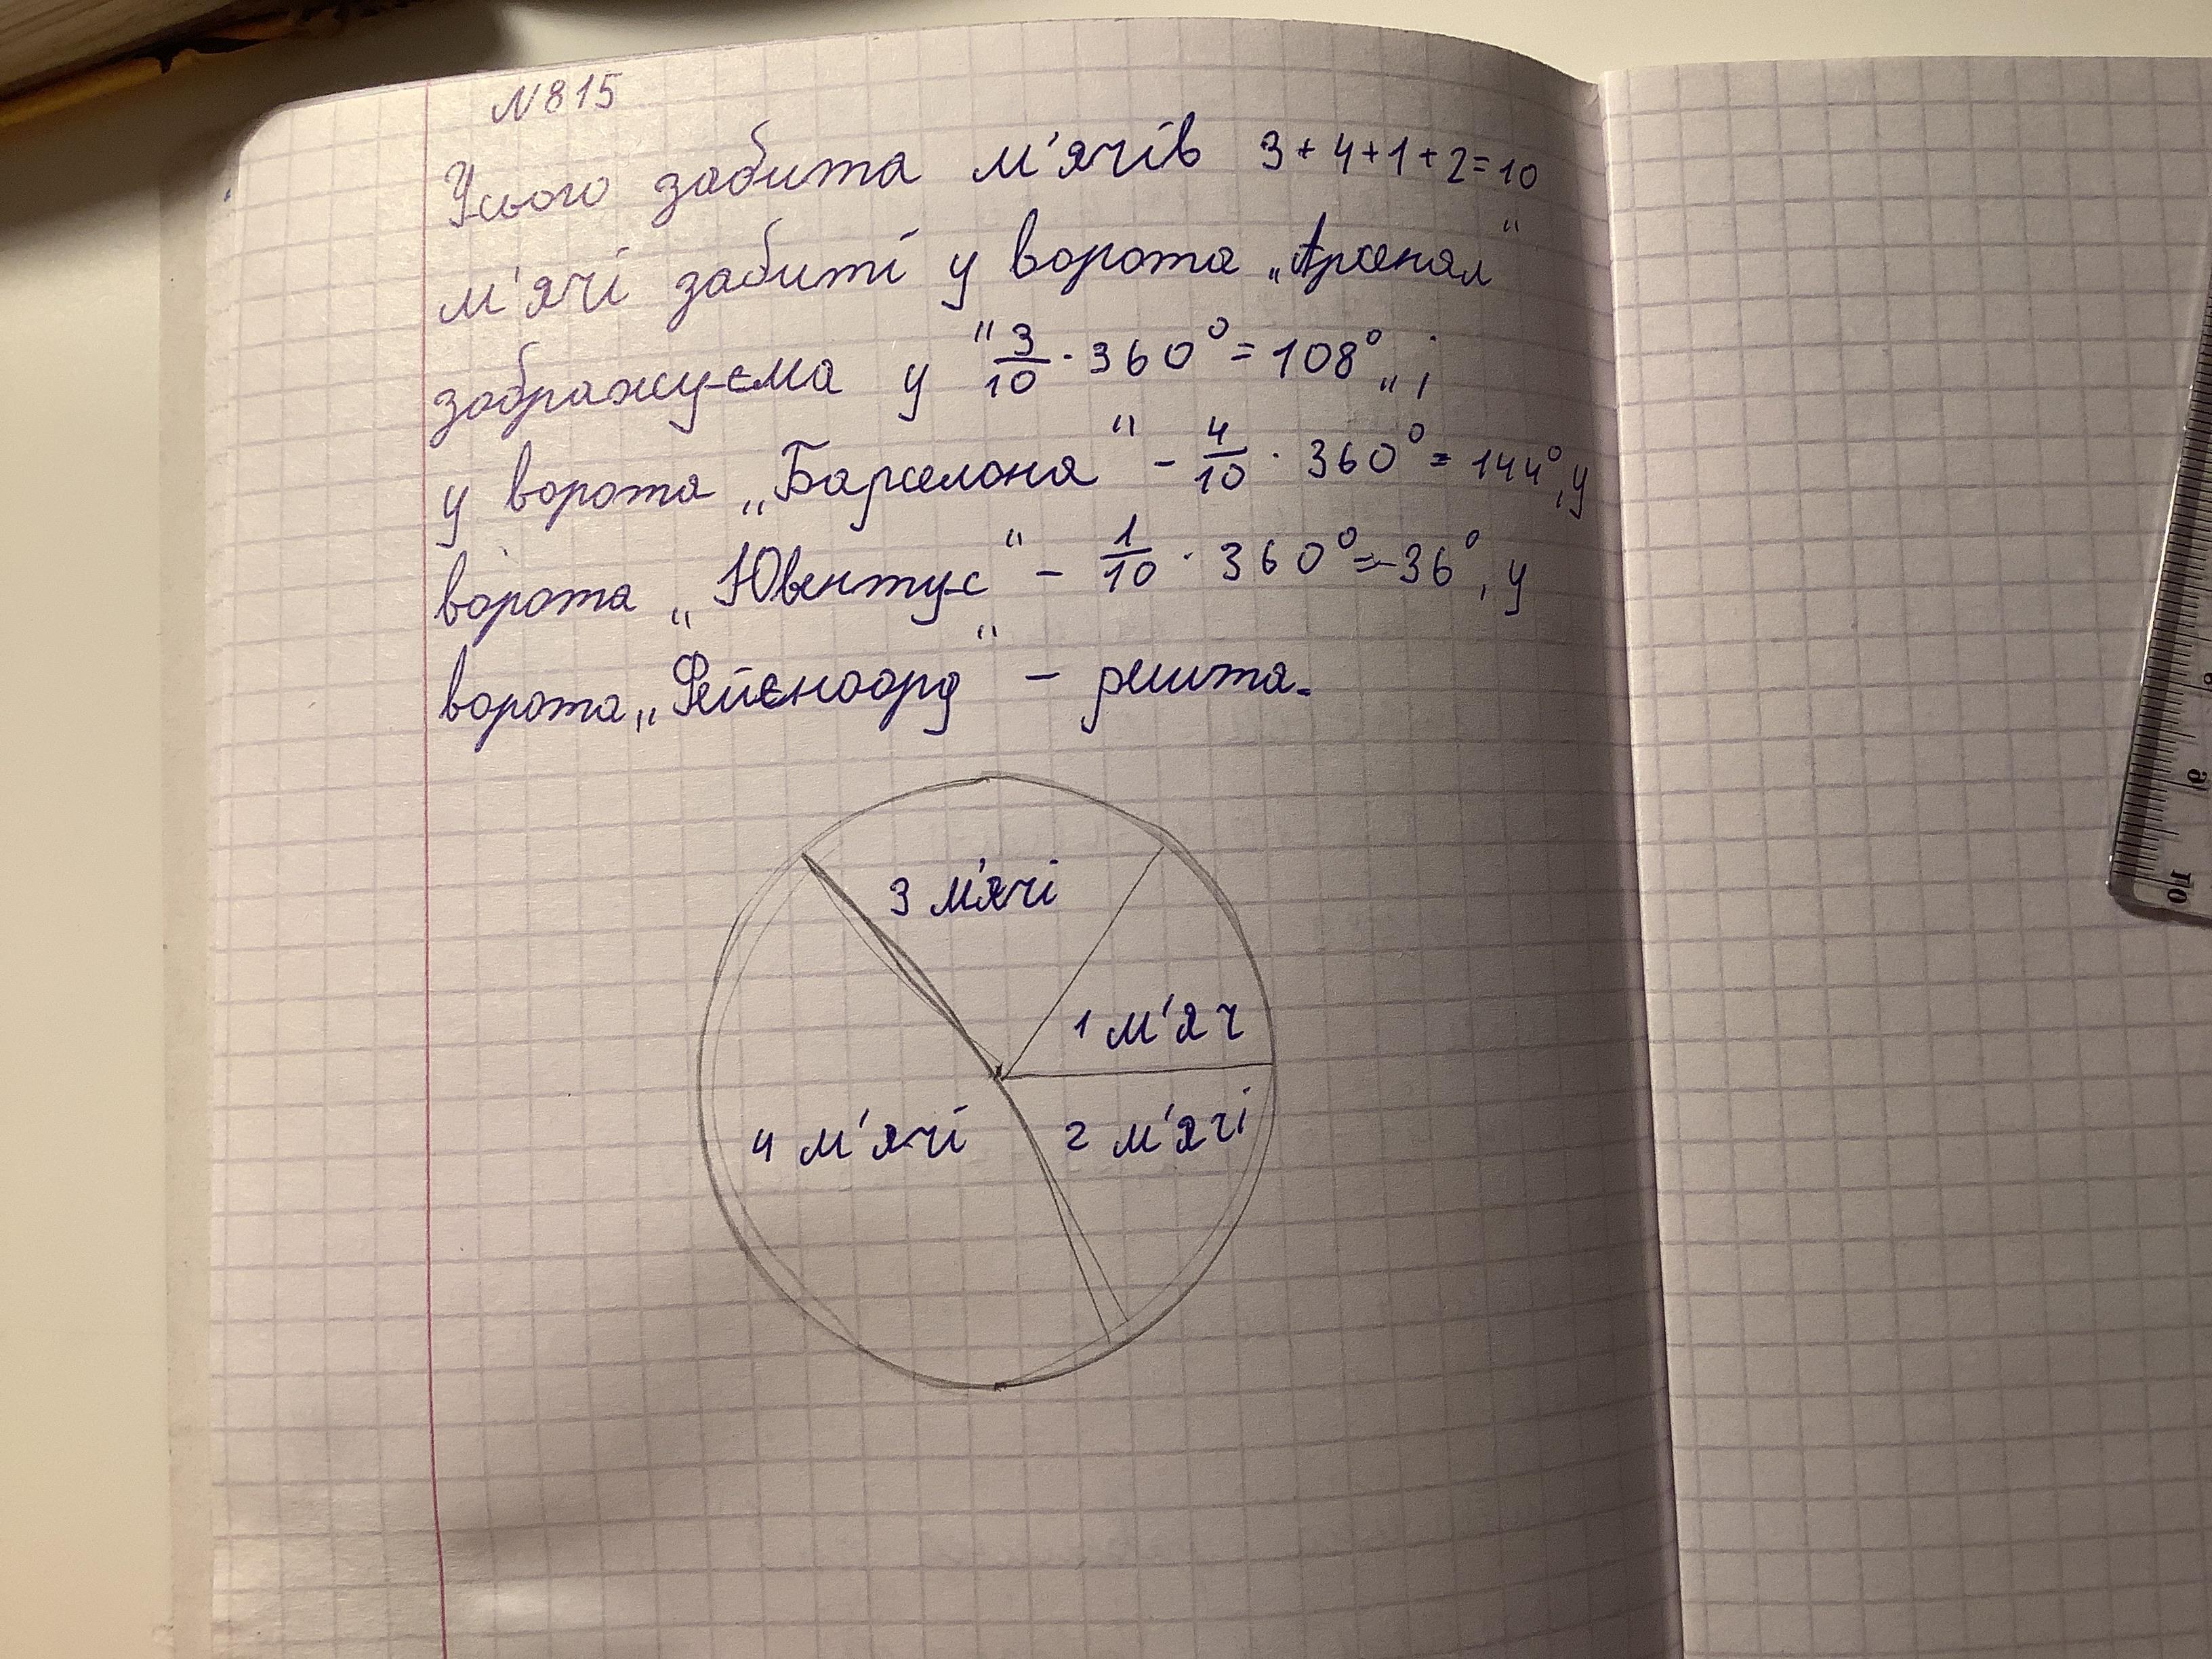 N815
Усього забита м'ячів 3+4+1+2=10
м'ячі забиті у ворота „Арсенал"
зображуєма у "3/10 · 360° = 108°„ ;
у ворота „Барселона" - 4/10 · 360° = 144°, у
ворота „Ювентус" - 1/10 · 360° = 36°, у
ворота „Фейєноорд" - решта.
3 м'ячі
1 м'яч
4 м'ячі 2 м'ячі
10